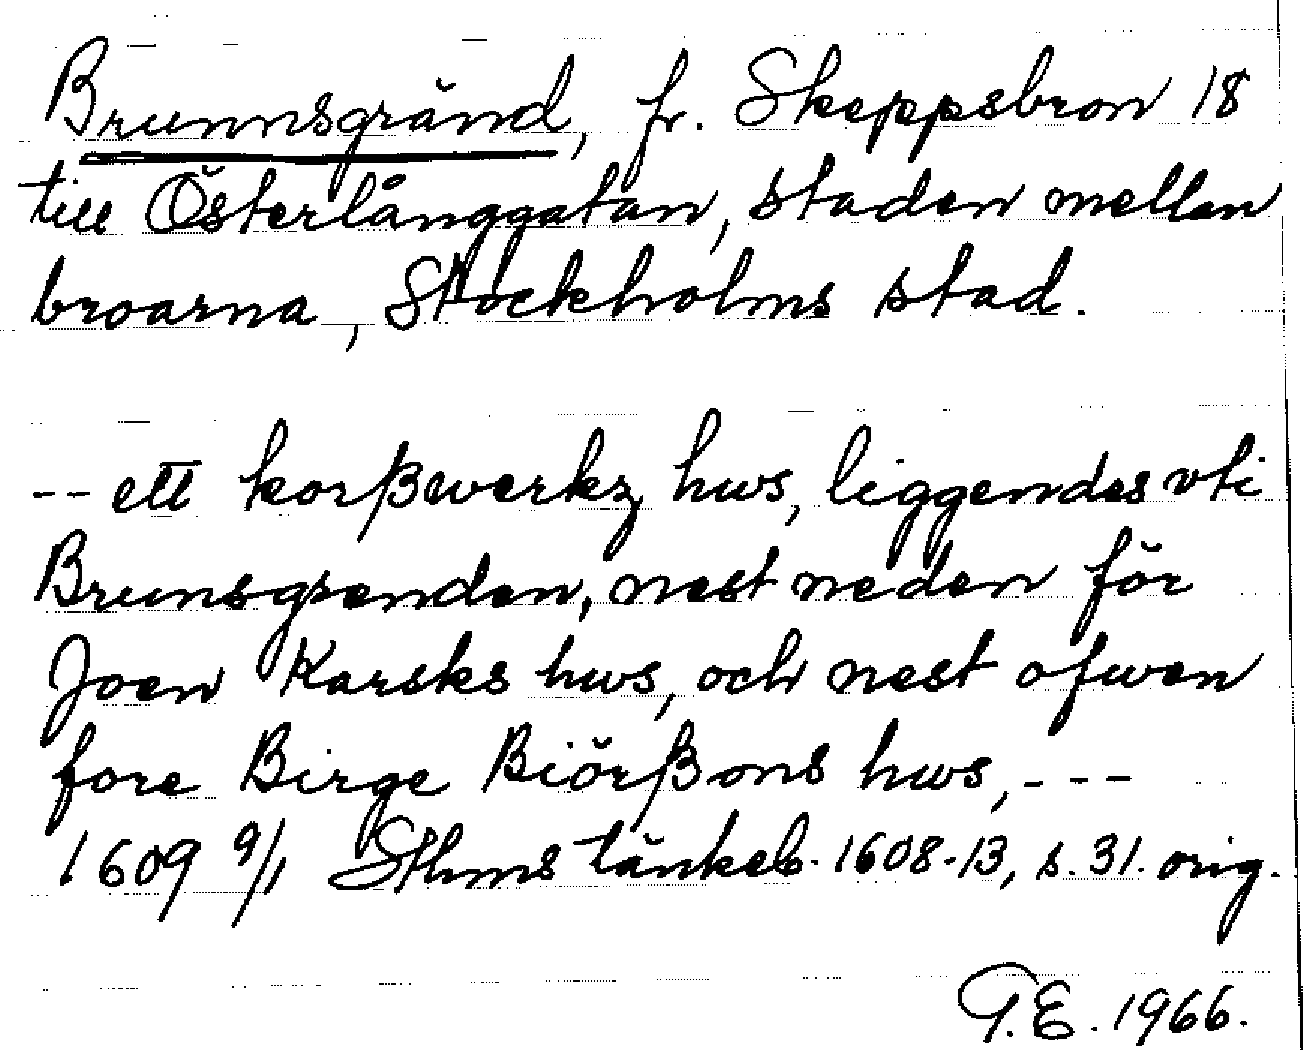 Brunnsgränd, fr. Skeppsbron 18
till Österlånggatan, staden mellan
broarna, Stockholms stad.
-- ett korßwerkz hws, liggendes vti
Brunsgrenden, nest neden för
Joen Karsks hws, och nest ofwen
fore Birge Biörßons hws, ---
1609 9/1 Sthms tänkeb. 1608-13, s. 31. orig.
T.E. 1966.